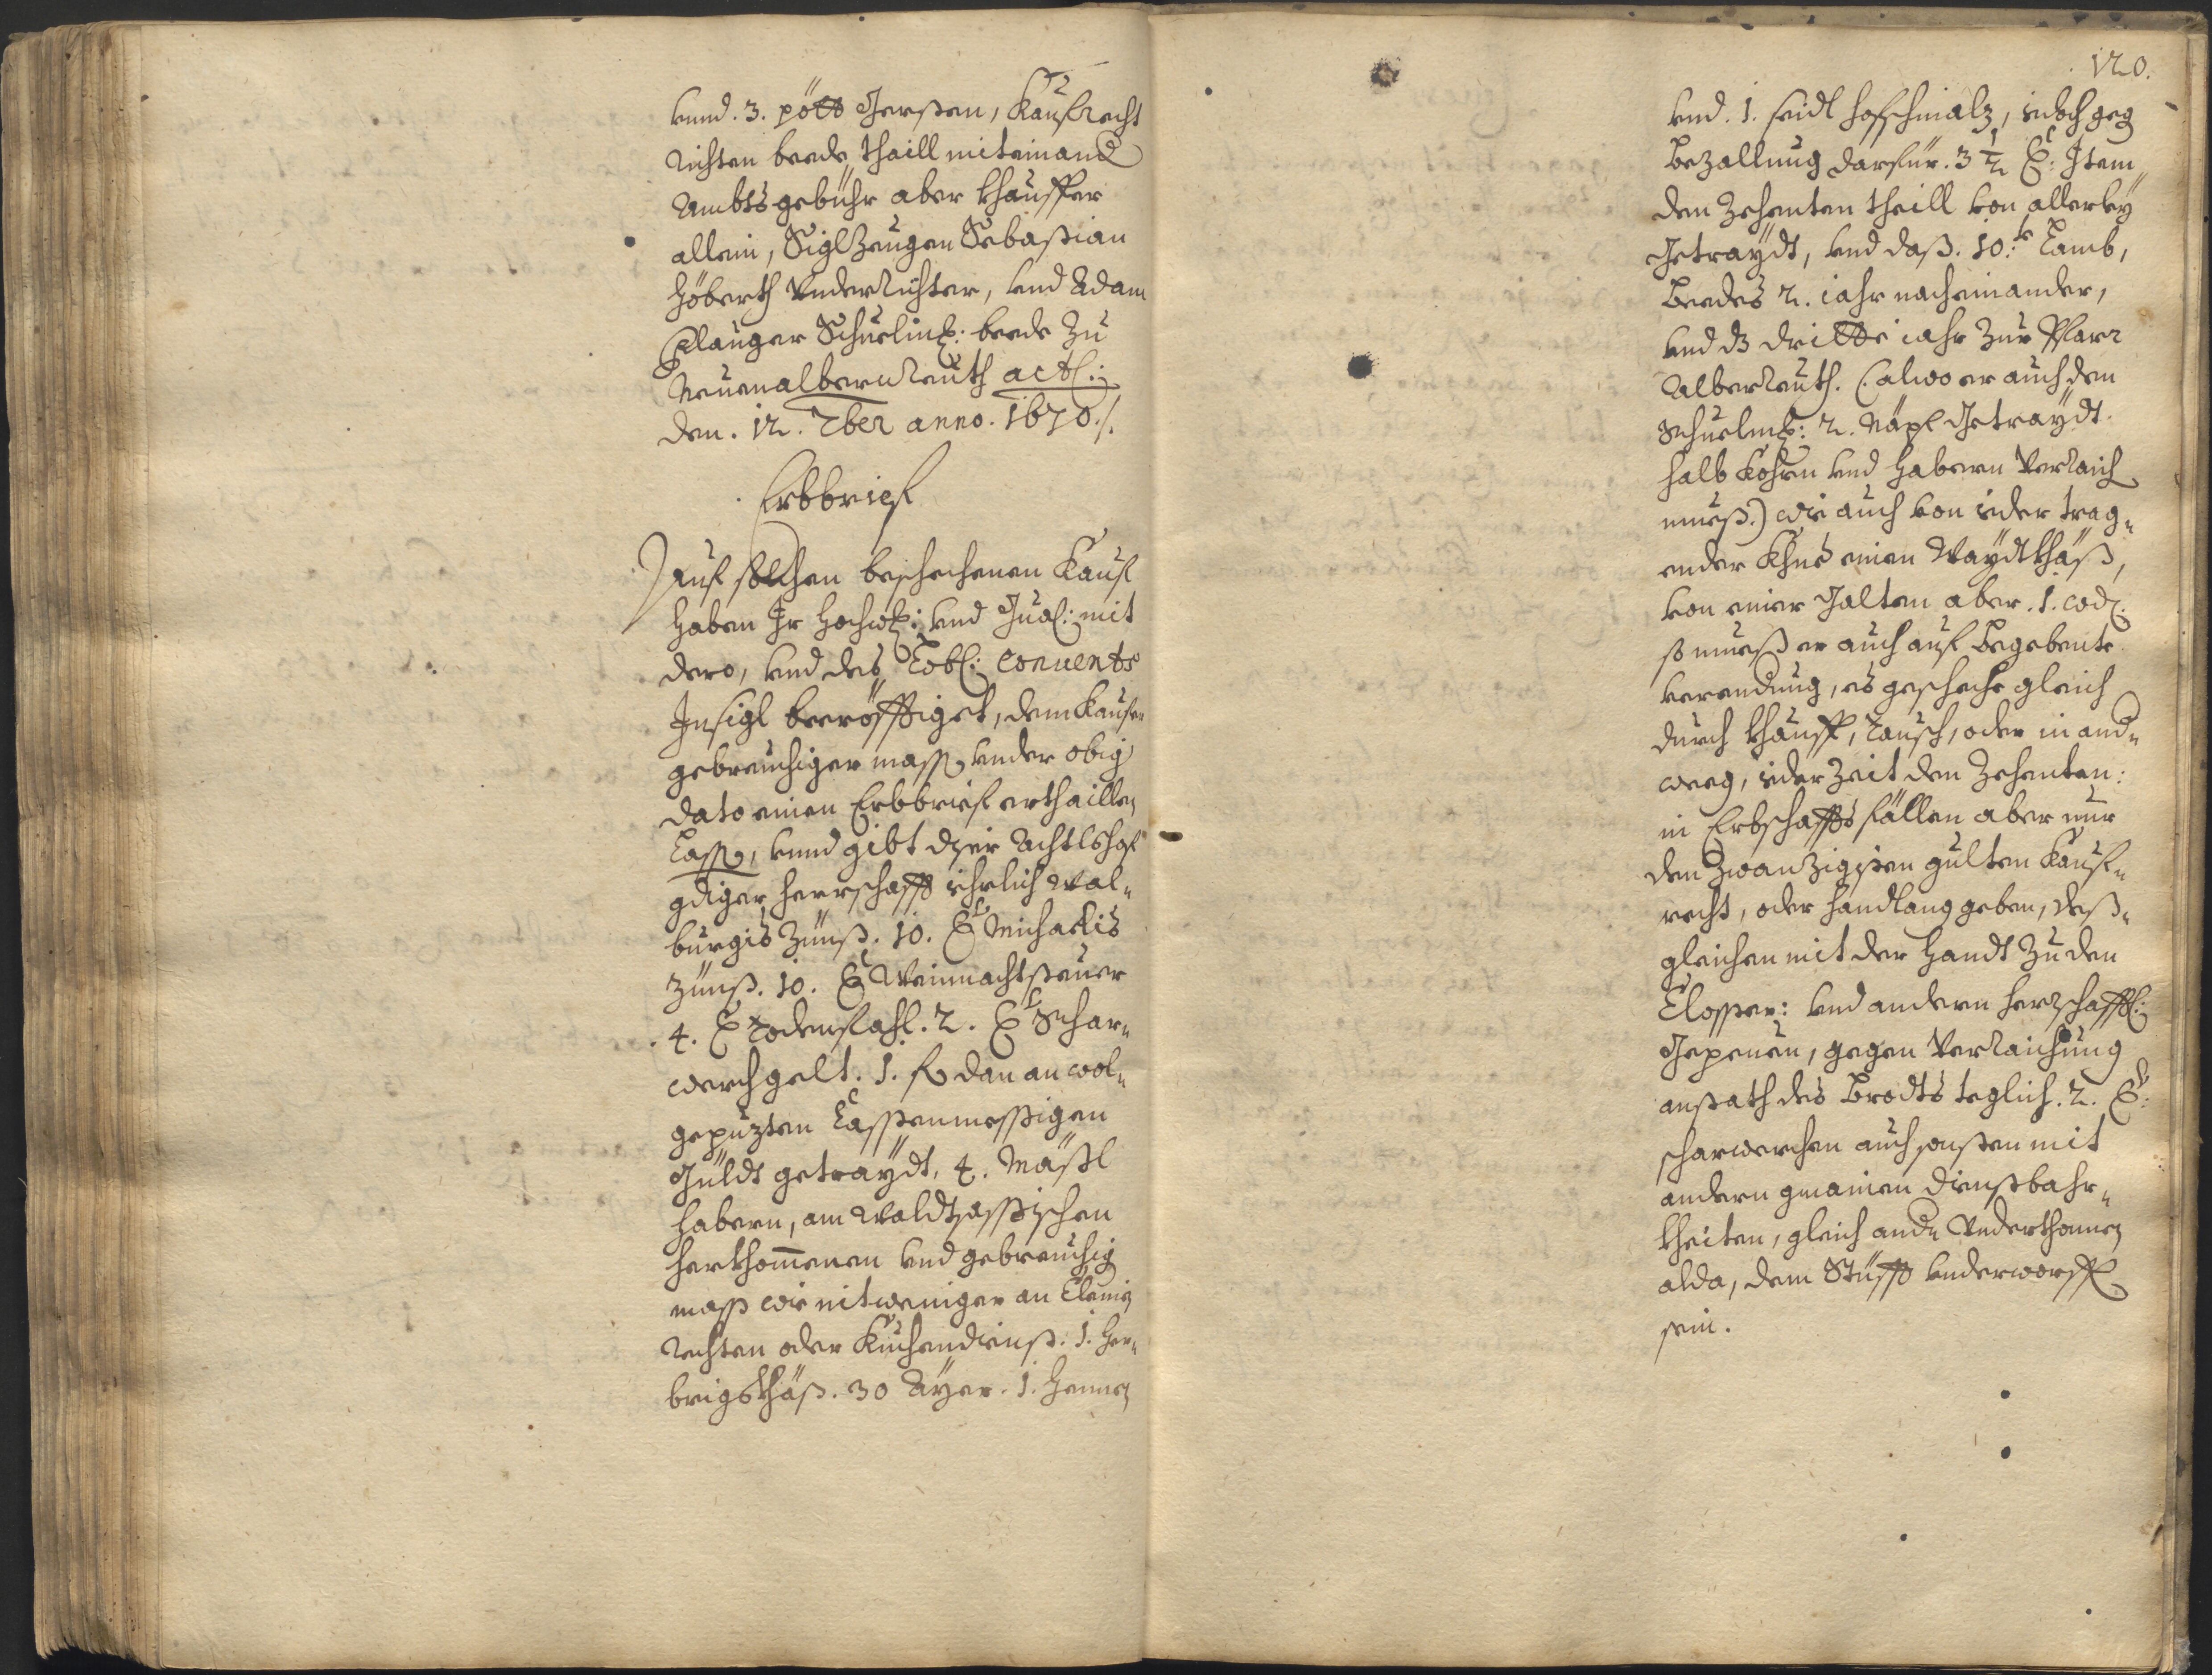 vnnd. 3. pött Gersten, Kaufrecht
richten beede thaill miteinand
Ambts gebühr aber khauffer
allein, Siglzeugen Sebastian
Höberth Vnderrichter, vnd Adam
Planger Schuelmr: beede zu
Neuenalbernreuth actl:
den. 12. 7ber anno. 1670./.
Erbbrief
Auf solchen beschechenen Kauf
haben Ir Hochw: vnd Gnd: mit
dero, vnd des Löbl: Conuents
Insigl becröfftiget, dem Kaufer
gebreuchiger mass vnder obig
dato einen Erbbrief erthaillen
lassen, vnnd gibt dser Achtlshof
gdiger Herrschafft iehrlich Wal=
burgis Zünß. 10. kr Michaelis
Zünß. 10. kr Weinnachtsteuer
4. kr Todenfahl. 2. kr Schar=
werchgelt. 1. fl dan an wol=
gepuzten Casstenmessigen
Güldt getraydt, 4. Mässl
Habern, am Waldtsassischen
herkhommenen vnd gebreuchig
mass wie nitweniger an Clain
rechten oder Kuchendienst. 1. Her=
brigskhäß. 30 Ayer. 1. Hennen
120.
vnd. 1. seidl hofschmalz, iedoch geg
Bezallung darfür. 3 1/2 kr: Item
den Zehenten theill von allerley
Getraydt, vnd daß. 10.te Lamb,
Beedes 2. iahr nacheinander,
vnd dz dritte iahr zur Pfarr
Albereuth. (alwo er auch dem
Schuelmr: 2. Näpl Getraydt
halb Kohrn vnd Habern Verraich
mueß.) wie auch von ieder trag=
ender Khue einen Waydtkhäß,
von einer Galten aber. 1. 
so mueß er auch auf Begebente
verendung, es gescheche gleich
durch khauff, Tausch, oder in and=
weeg, ieder Zeit den Zehenten:
in Erbschaffts fällen aber nur
den Zwanzigisten gulten Kauf=
recht, oder Handlang geben, deß=
gleichen mit der Handt zu den
Closter: vnd andern herrschafftl:
Gepeuen, gegen Verraichung
anstath des Brodts teglich. 2. kr:
scharwerchen auch sonsten mit
andern gmainen Dienstbahr=
kheiten, gleich and= Vnderthonnen
alda, dem Stüfft vnderworffen
sein.